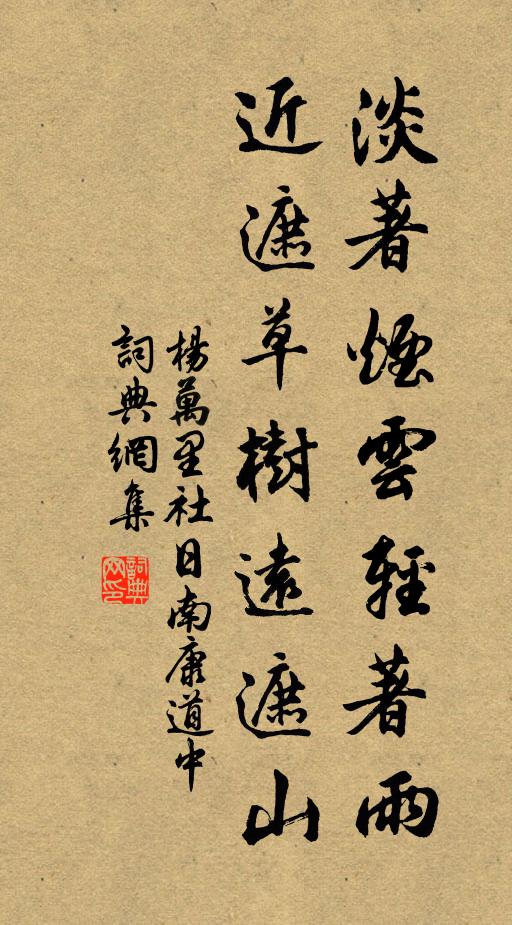 淡著煙雲輕著雨
近遮草樹遠遮山
楊萬里社日南康道中
詞典網集
詞典網印